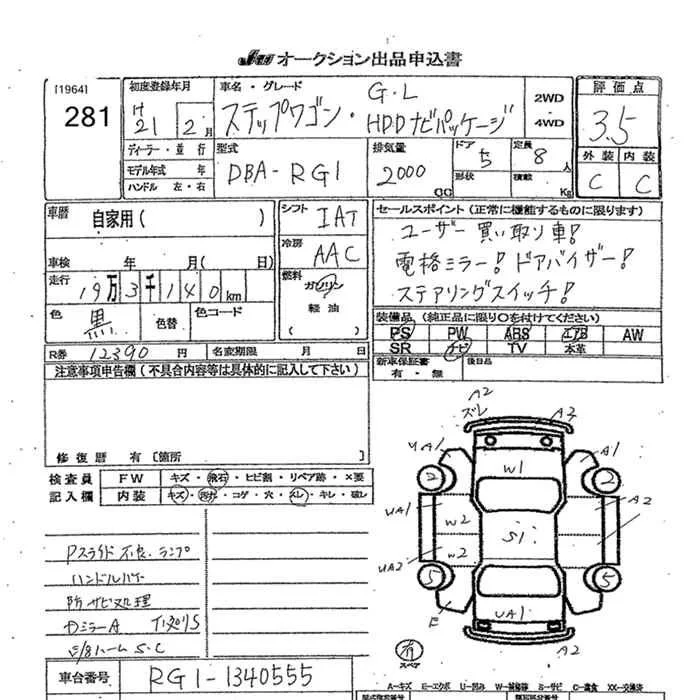 オークション出品申込書
[1964]
281
初度登録年月
21 2月
車名・グレード
ステップワゴン・
G・L
HDDナビパッケージ
2WD
4WD
評価点
3.5
外装 内装
C C
ディーラー・並行
モデル年式 年
ハンドル 左・右
型式
DBA-RG1
排気量
2000
CC
ドア
5
形状
定員
8人
積載
Kg
車歴
自家用( )
車検 年 月(日)
走行
19万3千140km
色
黒
色替
色コード
シフト
IAT
冷房
AAC
燃料
ガソリン
軽油
( )
セールスポイント(正常に機能するものに限ります)
ユーザー買い取り車!
電格ミラー!ドアバイザー!
ステアリングスイッチ!
装備品(純正品に限り○を付けてください)
PS PW ABS エアB AW
SR ナビ TV 本革
新車保証書
有・無
後日品
R券 12390円
名変期限 月 日
注意事項申告欄(不具合内容等は具体的に記入して下さい)
修復歴 有〔箇所 〕
検査員
記入欄
FW キズ・飛石・ヒビ割・リペア跡・×要
内装 キズ・汚れ・コゲ・穴・スレ・キレ・破レ
Pスライド不良、ランプ
防サビ処理
車台番号
RG1-1340555
A2
ズレ
A2
UA1
A1
2
2
W1
UA1
W2
A2
S1
UA2
W2
5
5
E
UA1
A2
スペア
A-キズ E-エクボ U-凹み W-補修跡 S-サビ C-腐食 XX-交換済